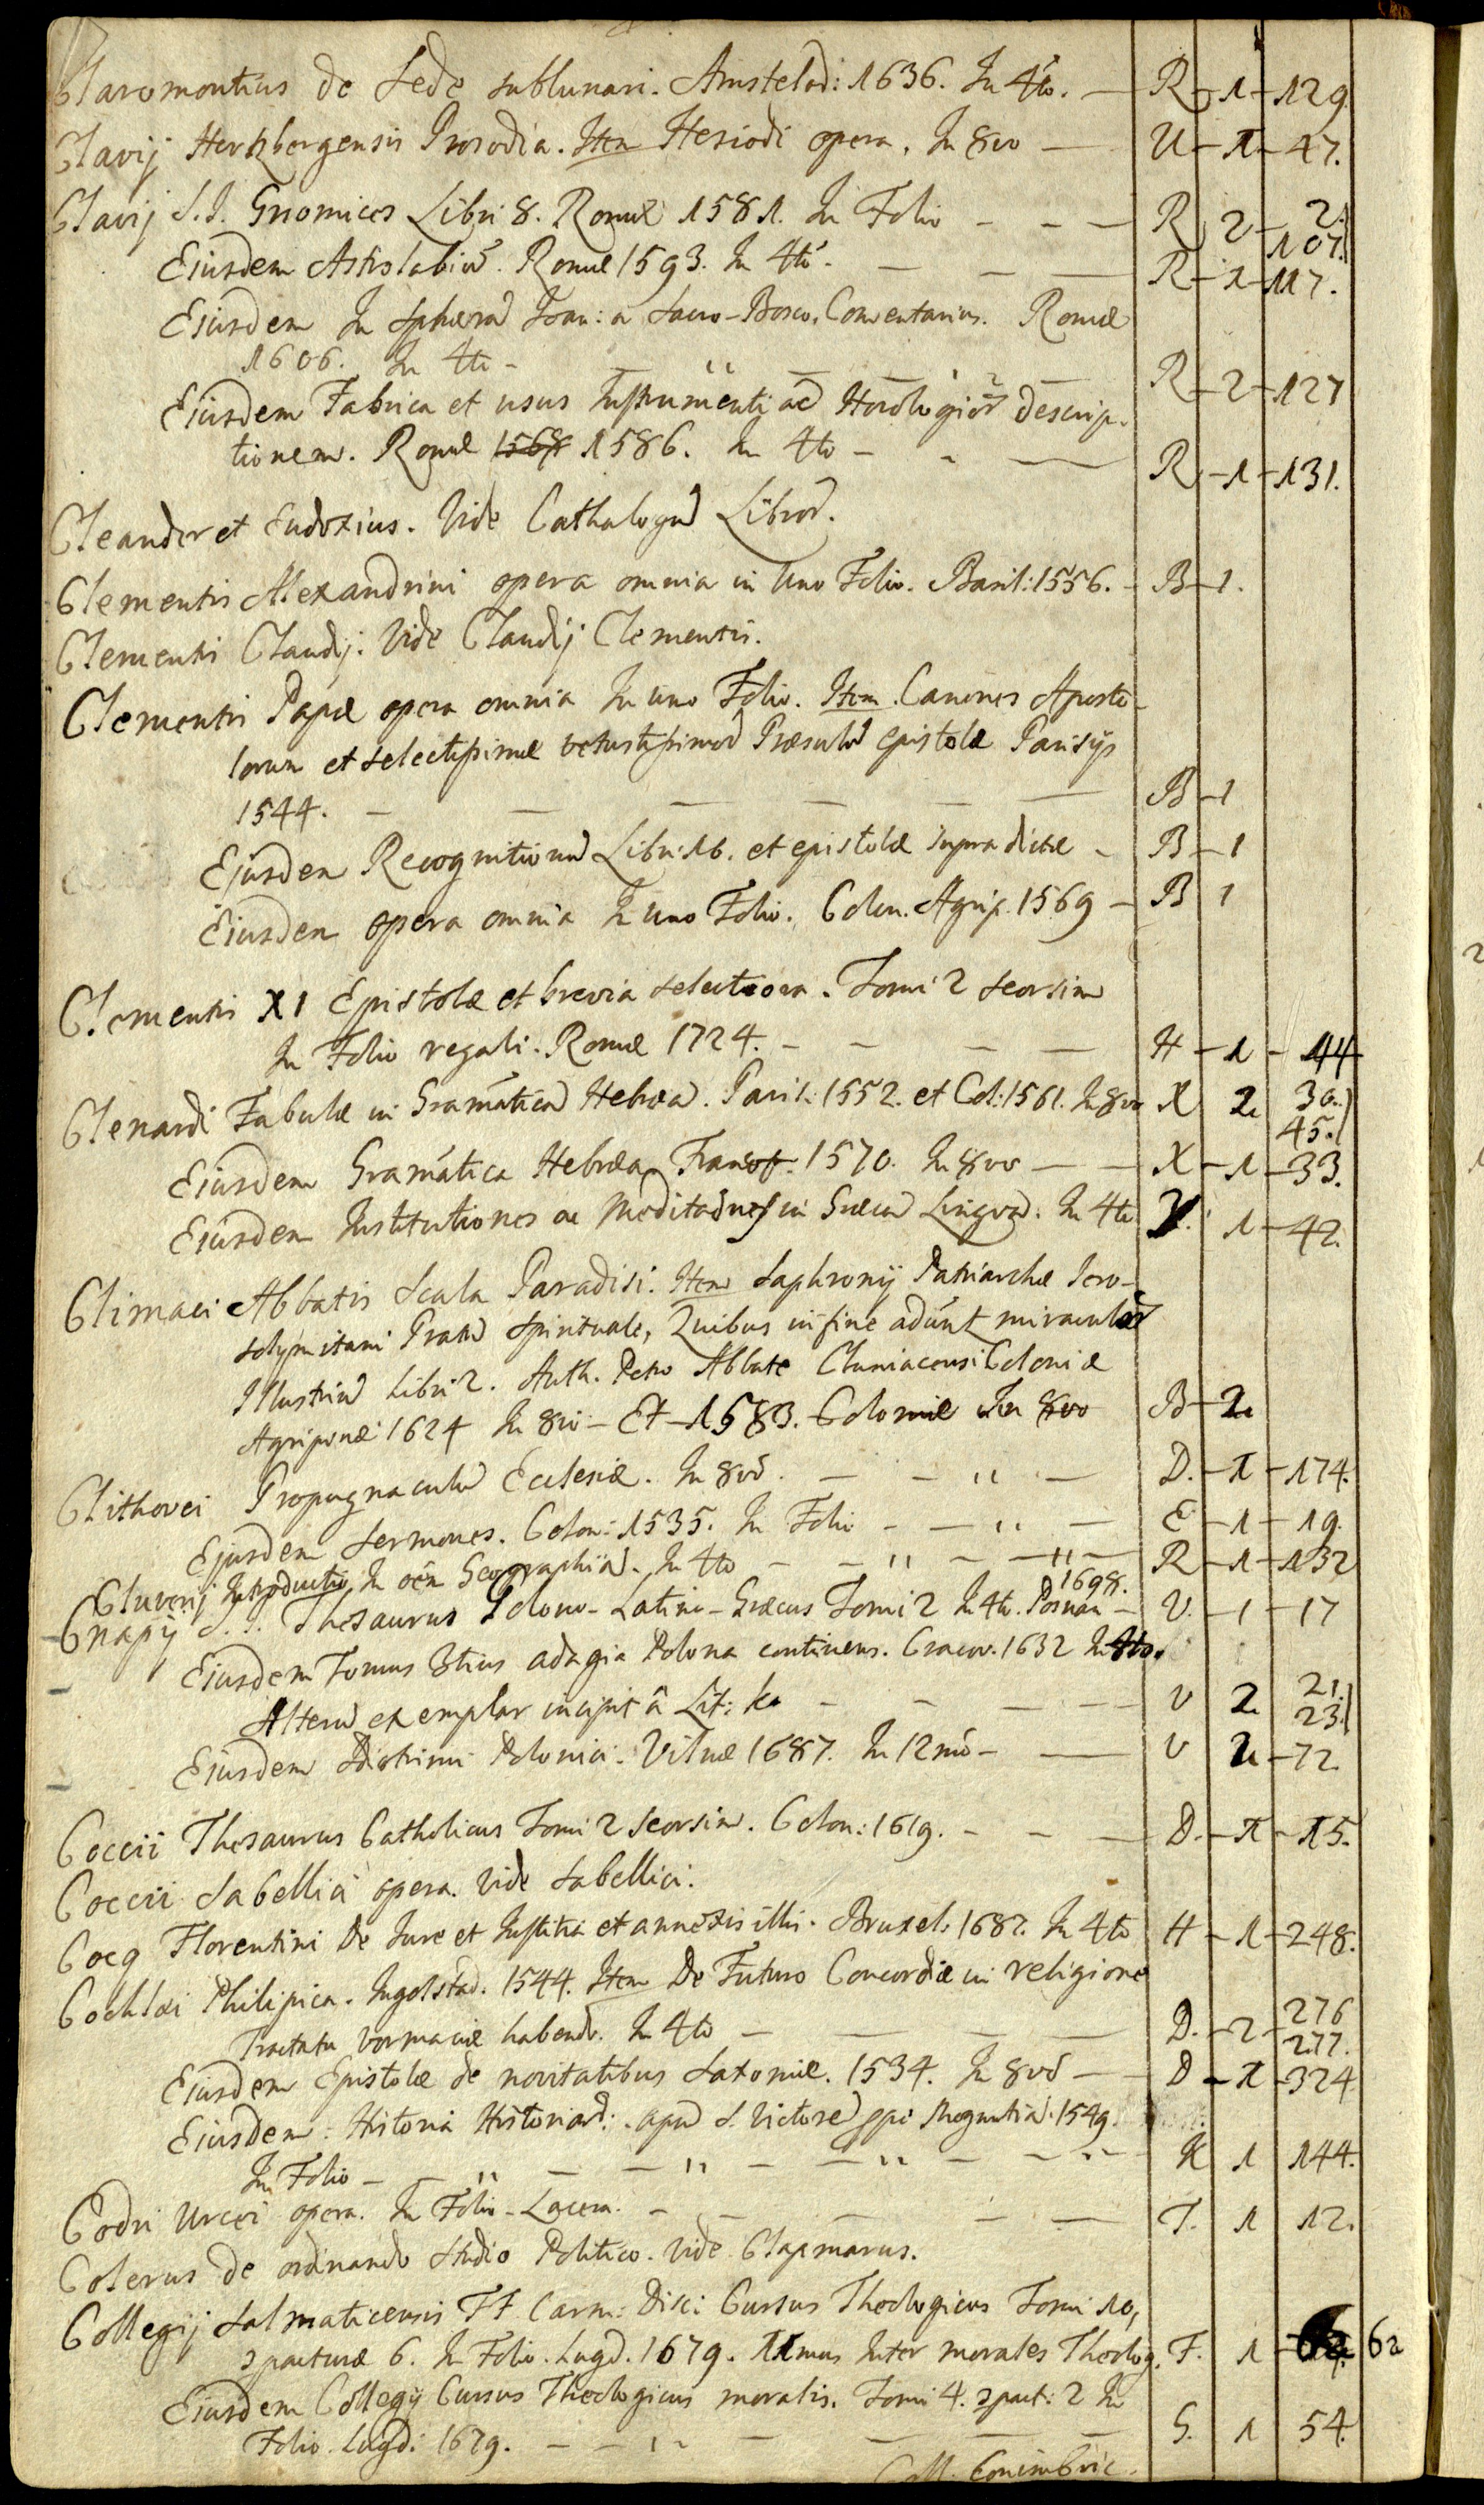 Claromontius de Sede sublunari. Amstelod: 1636. In 4to. — R - 1 - 129
Clavij Hertzbergensis Prosodia. Item Hesiodi opera. In 8vo — U - 1 - 47.
Clavij S.J. Gnomices Libri 8. Romæ 1581. In Folio - - — R 2 - 2. 107.
Ejusdem Astrolabiũ. Romæ 1593. In 4to. — — — R - 1 - 117.
Ejusdem In Sphærã Joan: a Sacro-Bosco. Comentarius. Romæ
1606. In 4to - — — — R - 2 - 127
Ejusdem Fabrica et usus Instrumenti ad Horologiorũ descrip-
tionem. Romæ 1568 1586. In 4to - - — R - 1 - 131.
Cleander et Eudoxius. Vide Cathalogũ Librorũ.
Clementis Alexandrini opera omnia in Uno Folio. Basil: 1556. - B - 1.
Clementis Claudij. Vide Claudij Clementis.
Clementis Papæ opera omnia In uno Folio. Item. Canones Aposto-
lorum et selectissimæ vetustissimorũ Præsulũ Epistolæ Parisijs
1544. — — — — — — B - 1
Ejusdem Recognitionũ Libri 10. et epistolæ supra dictæ - B - 1
Ejusdem opera omnia In uno Folio. Colon. Agrip. 1569 - B 1
Clementis XI Epistolæ et brevia selectiora. Tomi 2 seorsim
In Folio regali. Romæ 1724. - - — — H - 1 - 44
Clenardi Tabulæ in Gramáticã Hebræã. Paris: 1552. et Col: 1561. In 8vo X 2 30. 45.
Ejusdem Gramática Hebræa Francof. 1570. In 8vo — — X - 1 - 33.
Ejusdem Institutiones ac Meditaões in Græcã Linguã. In 4to X. 1 - 42.
Climaci Abbatis Scala Paradisi. Item Sophronij Patriarchæ Jero-
solymitani Pratũ Spirituale, Quibus in fine adsunt miraculorũ
Illustriũ Libri 2. Auth. Petro Abbate Cluniacensi Coloniæ
Agripinæ 1624 In 8vo - Et 1583. Coloniæ In 8vo B - 2
Clithovei Propugnaculũ Eclesiæ. In 8vo. — - " — D. - 1 - 174.
Ejusdem Sermones. Colon: 1535. In Folio - — " — E - 1 - 19.
Cluverij Introductio In oẽm Geographiã. In 4to - - " - — " — R - 1 - 132
Cnapij S.J. Thesaurus Polono-Latino-Græcus Tomi 2 In 4to. Posnan 1698. — V. - 1 - 17
Ejusdem Tomus 3tius adagia Polona continens. Cracov. 1632 In 4to.
Alterũ exemplar incipit â Lit: ka - - — — V 2 21. 23.
Ejusdem Polonici. Vilnæ 1687. In 12mo - — V 2 - 72.
Coccii Thesaurus Catholicus Tomi 2 seorsim. Colon: 1619. - - — D. - 1 - 15.
Coccii Sabellici opera. Vide Sabellici.
Cocq Florentini De Jure et Justitia et annexis illis. Bruxel. 1687. In 4to H - 1 - 248.
Cochlæi Philipica. Ingolstad. 1544. Item De Futuro Concordiæ in religione
Tractatu vormaciæ habendo. In 4to — — — — D. - 2 - 276 277.
Ejusdem Epistolæ de novitatibus Saxoniæ. 1534. In 8vo — D - 1 - 324
Ejusdem: Historia Hussitarũ: apud S. Victorẽ Moguntiã. 1549.
In Folio - — " — — " — — " — — K 1 144.
Codri Urcei opera. In Folio - Lacera. - - — — — T. 1 12.
Colerus de ordinando Studio Politico. Vide Clapmarus.
Collegij Salmaticensis FF Carm: Disc: Cursus Theologicus Tomi 10,
compacturæ 6. In Folio. Lugd. 1679. Inter morales Theolog. F. 1 62
Ejusdem Collegij Cursus Theologicus moralis. Tomi 4. compact: 2 In
Folio. Lugd: 1679. — — — — — S. 1 54.
Coll. Conimbric.